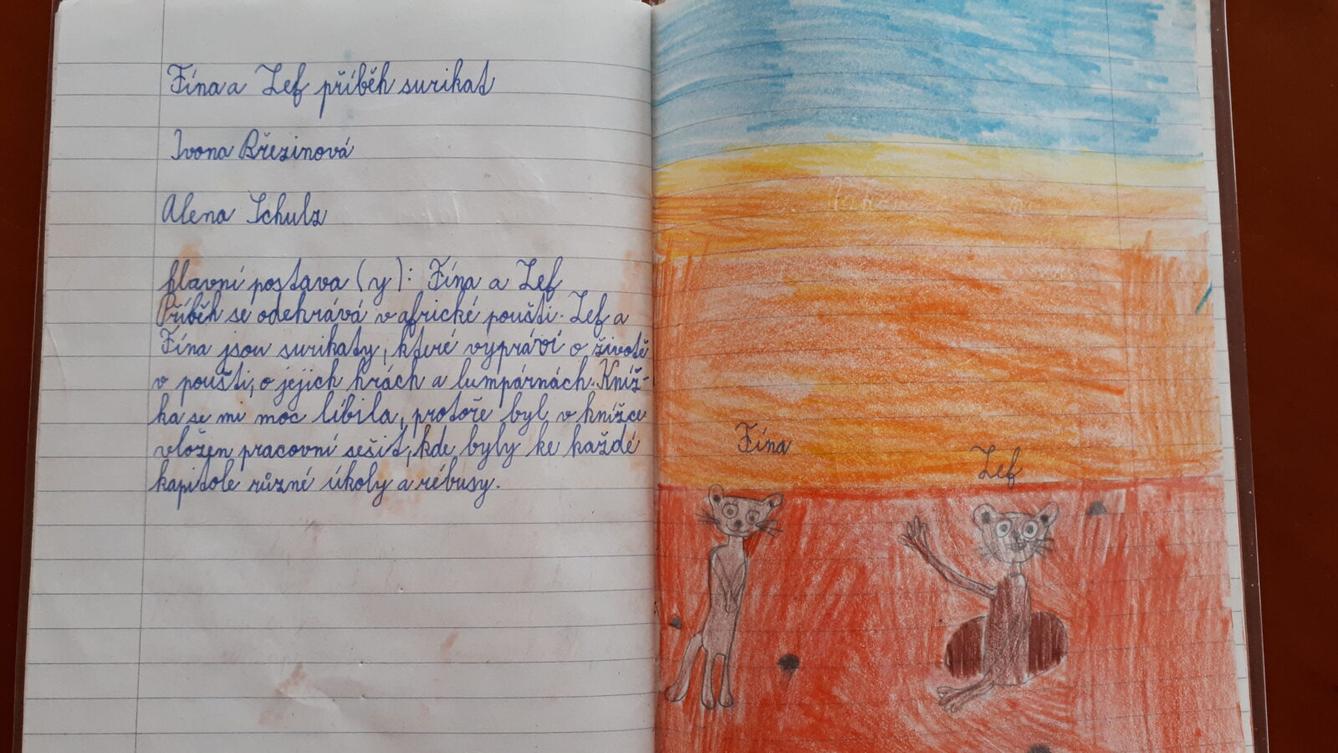 Fína a Zef příběh surikat
Ivona Březinová
Alena Schulz
hlavní postava (y): Fína a Zef
Příběh se odehrává v africké poušti. Zef a
Fína jsou surikaty, které vypráví o životě
v poušti, o jejich hrách a lumpárnách. Kníž-
ka se mi moc líbila, protože byl v knížce
vložen pracovní sešit, kde byly ke každé
kapitole různé úkoly a rébusy.
Fína
Zef